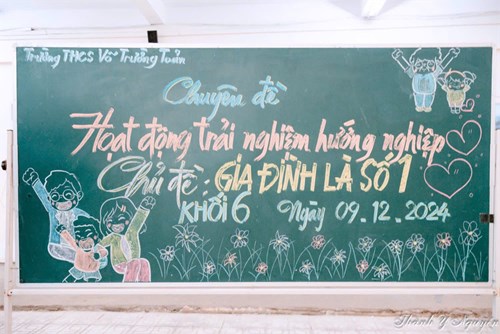 Trường THCS Võ Trường Toản
Chuyên đề
Hoạt động trải nghiệm hướng nghiệp
Chủ đề: GIA ĐÌNH LÀ SỐ 1
KHỐI 6 Ngày 09.12.2024
Thanh Y Nguyen